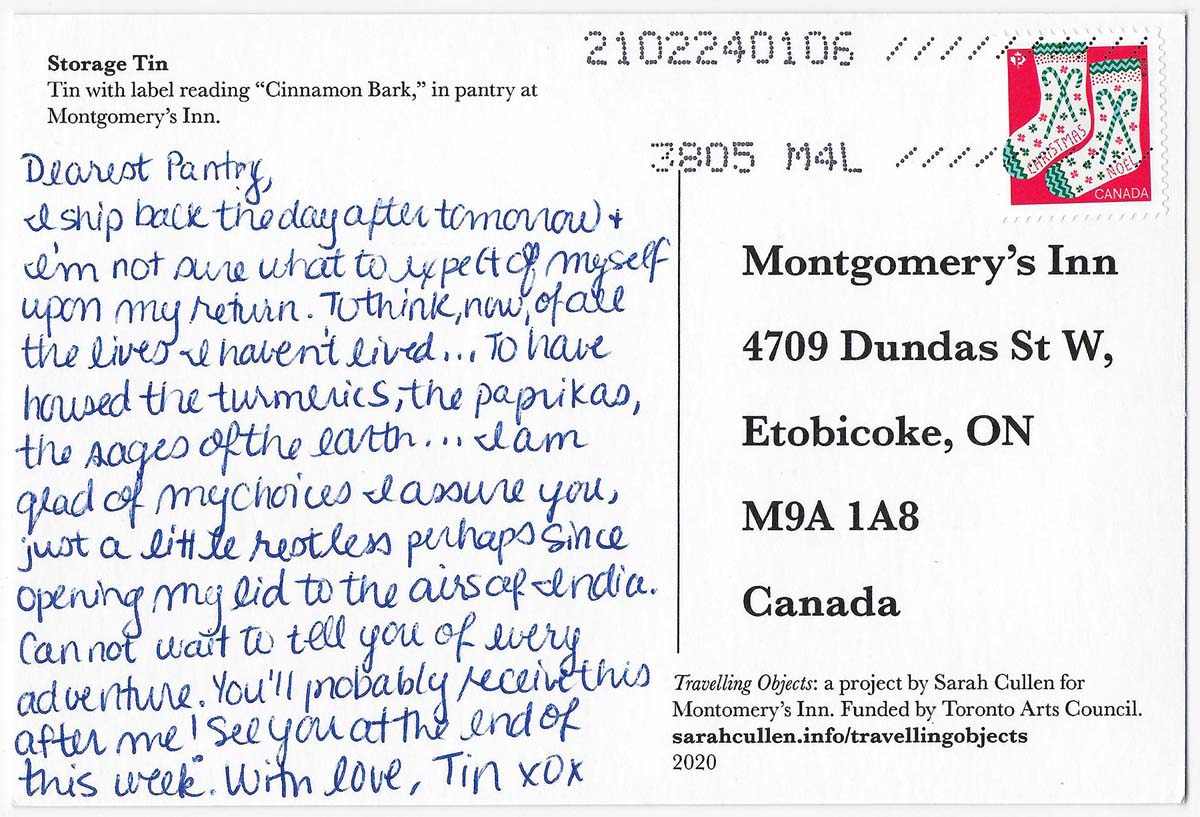 Storage Tin
Tin with label reading “Cinnamon Bark,” in pantry at
Montgomery’s Inn.
2102240106 /////////
3805 M4L /////////
CHRISTMAS
NOEL
CANADA
Dearest Pantry,
I ship back the day after tomorrow +
I'm not sure what to expect of myself
upon my return. To think, now, of all
the lives I haven't lived... To have
housed the turmerics, the paprikas,
the sages of the earth... I am
glad of my choices I assure you,
just a little restless perhaps since
opening my lid to the airs of India.
Cannot wait to tell you of every
adventure. You'll probably receive this
after me! See you at the end of
this week. With love, Tin xox
Montgomery’s Inn
4709 Dundas St W,
Etobicoke, ON
M9A 1A8
Canada
Travelling Objects: a project by Sarah Cullen for
Montomery’s Inn. Funded by Toronto Arts Council.
sarahcullen.info/travellingobjects
2020